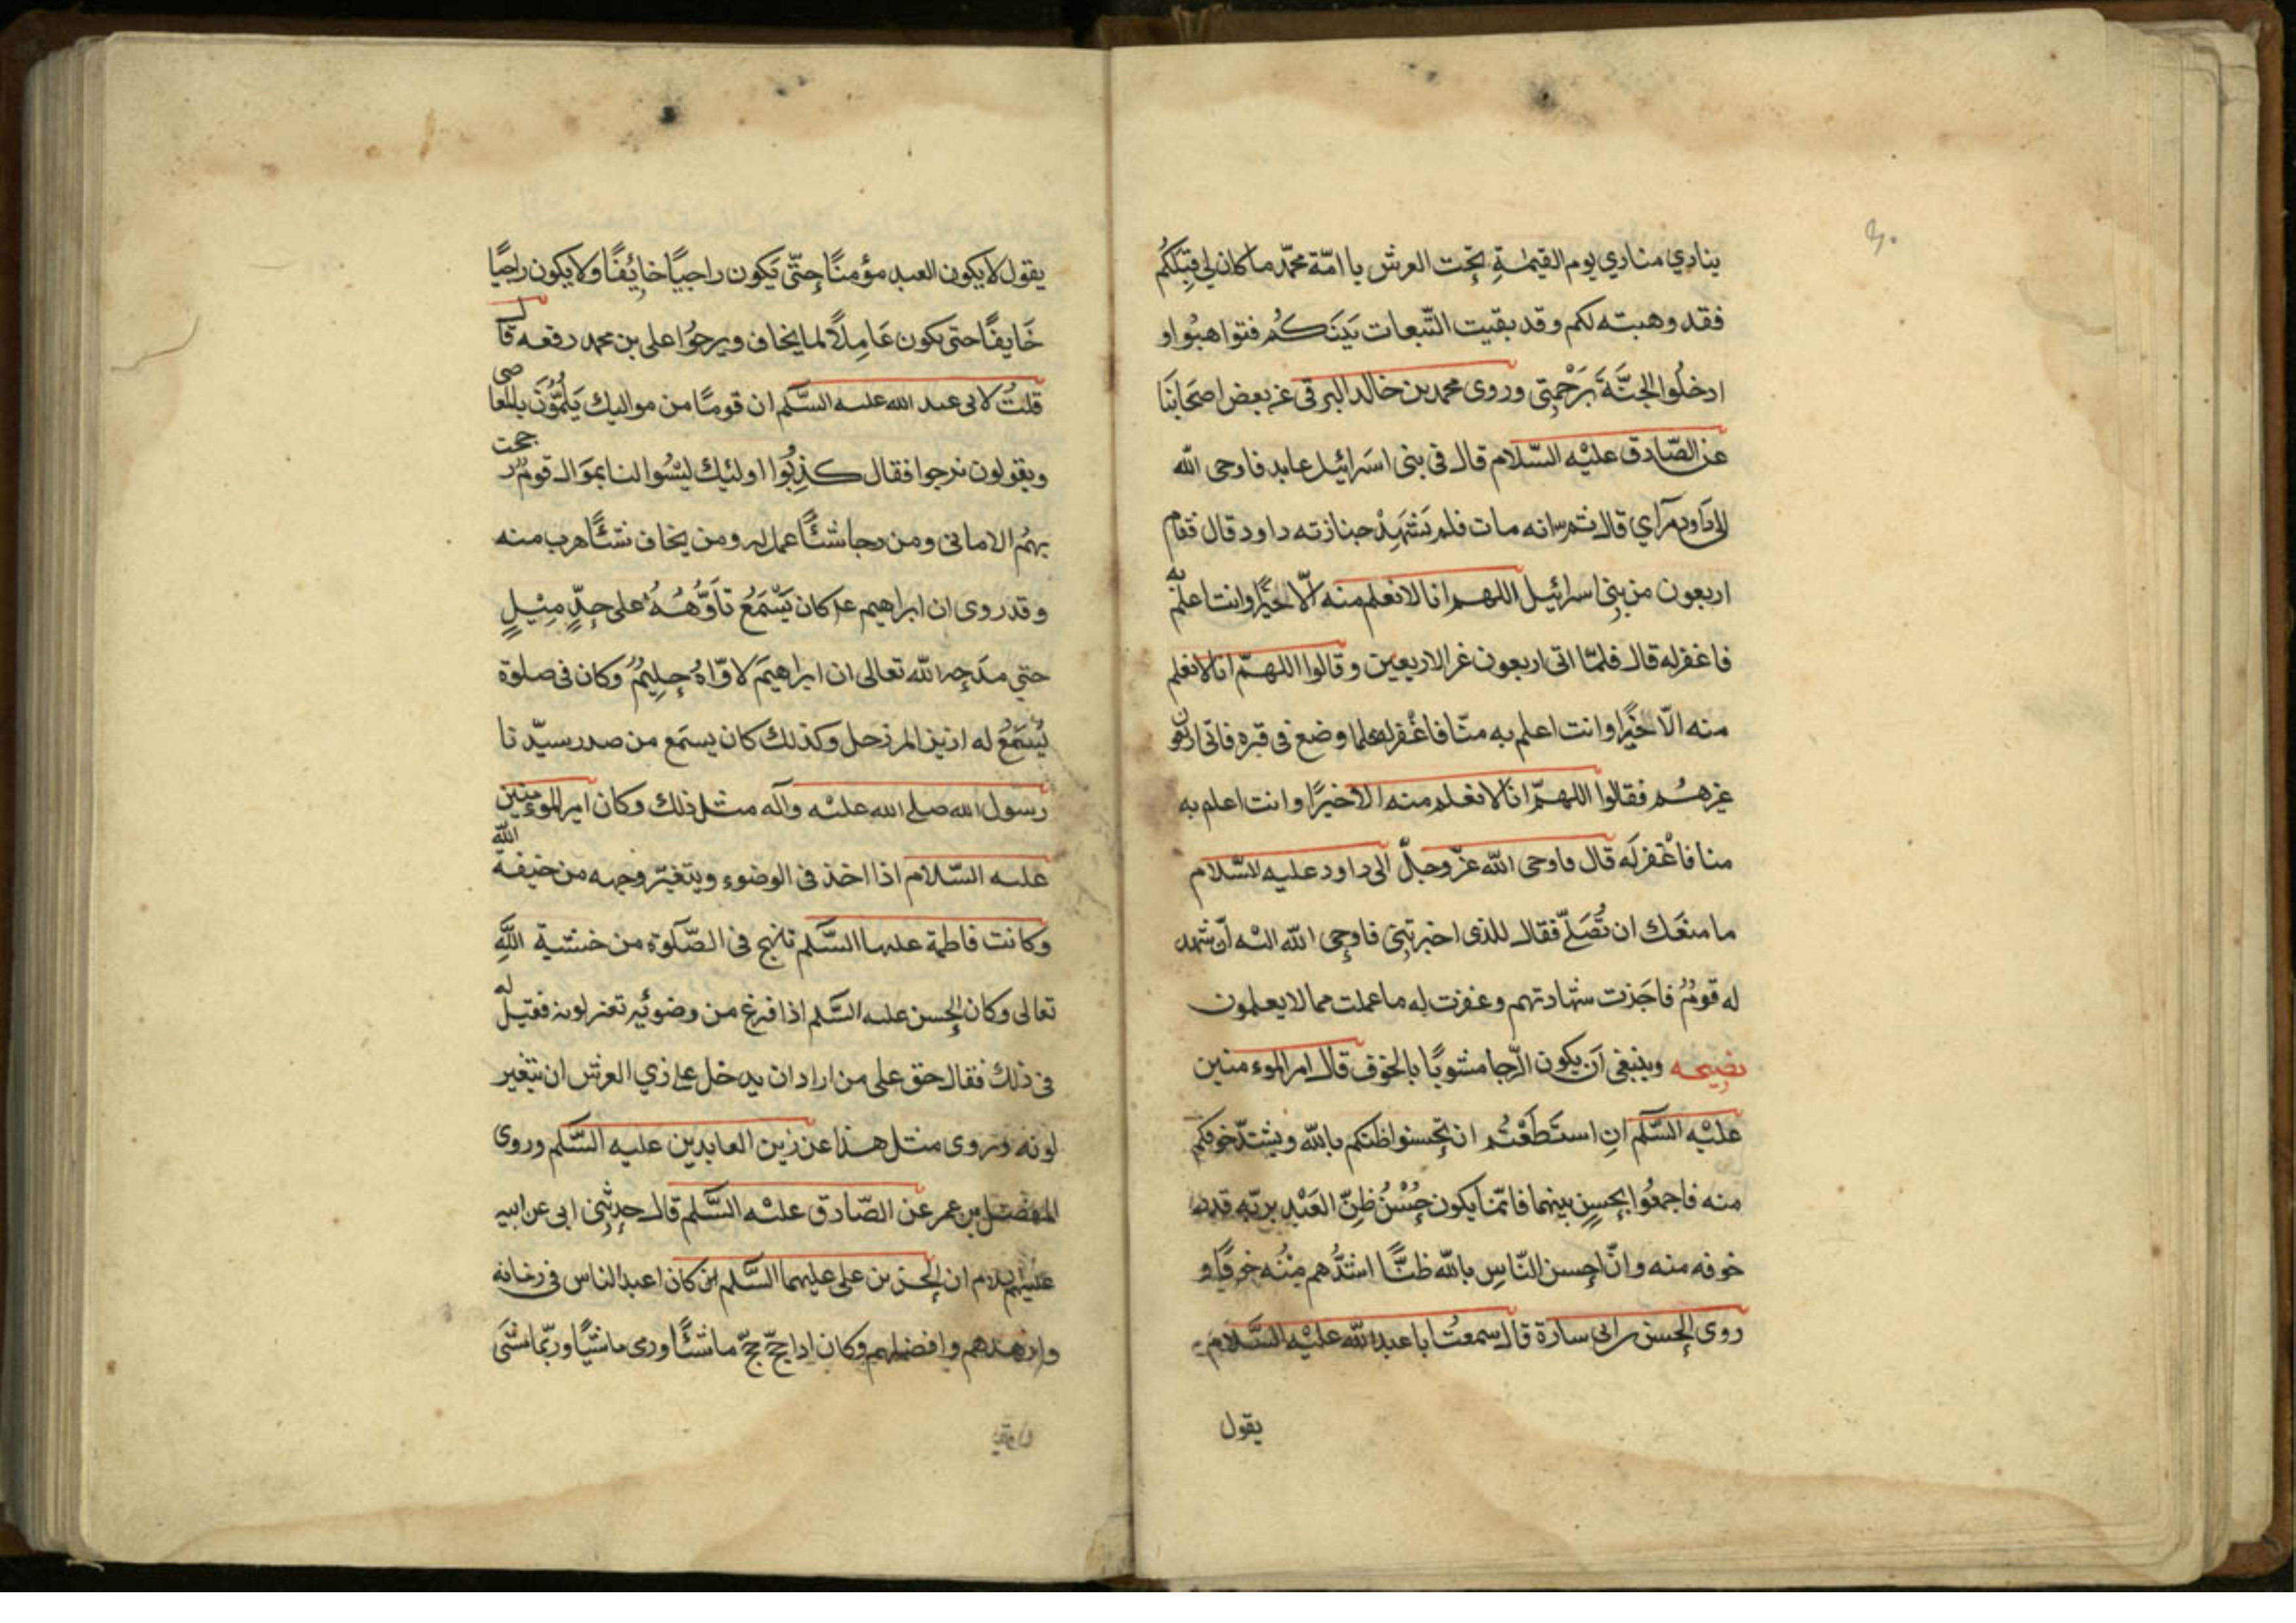 ينادي منادي يوم القيمة تحت العرش يا امّة محمّد ما كان لي قبلكم
فقد وهبته لكم وقد بقيت التّبعات بينكم فتواهبوا و
ادخلوا الجنّة برحمتى وروى محمد بن خالد البرقى عن بعض اصحابنا
عن الصّادق عليه السّلام قال فى بنى اسرائيل عابد فاوحى الله
الى داود مرآى قال ثم انه مات فلم يشهد جنازته داود قال فقام
اربعون من بنى اسرائيل اللهم انا لا نعلم منه الّا خيرًا وانت اعلم به
فاغفر له قال فلمّا اتى اربعون غير الاربعين وقالوا اللهمّ انا لا نعلم
منه الّا خيرًا وانت اعلم به منّا فاغفر له فلما وضع فى قبره فاتى اربعون
غيرهم فقالوا اللهمّ انا لا نعلم منه الا خيرًا وانت اعلم به
منا فاغفر له قال فاوحى الله عزّ وجلّ الى داود عليه السّلام
ما منعك ان تصلّى فقال للذى اخبرتنى فاوحى الله اليه أن شهد
له قوم فاجزت شهادتهم وغفرت له ما عملت مما لا يعلمون
نصيحه وينبغى أن يكون الرّجا مشوبًا بالخوف قال امير المومنين
عليه السّلم ان استطعتم ان تحسنوا ظنكم بالله ويشتدّ خوفكم
منه فاجمعوا بينهما فانّما يكون حسن ظنّ العبد بربّه قدر
خوفه منه وانّ احسن النّاس بالله ظنًّا اشدّهم منه خوفًا و
روى الحسن بن ابى سارة قال سمعت ابا عبد الله عليه السّلام
يقول
يقول لا يكون العبد مؤمنًا حتّى يكون راجيًا خايفًا ولا يكون راجيًا
خايفًا حتى يكون عاملًا لما يخاف ويرجو على بن محمد رفعه قال
قلت لابى عبد الله عليه السّلم ان قومًا من مواليك يلمّون بالمعاصى
ويقولون نرجوا فقال كذبوا اولئك ليسوا لنا بموال قوم رجحت
بهم الامانى ومن رجا شيئًا عمل له ومن يخاف شيئًا هرب منه
وقد روى ان ابراهيم ع كان يسمع تاوّهه على حدّ ميل
حتى مدحه الله تعالى ان ابراهيم لاوّاه حليم وكان فى صلوة
يسمع له ازيز المرجل وكذلك كان يسمع من صدر سيّدنا
رسول الله صلى الله عليه وآله مثل ذلك وكان امير المومنين
عليه السّلام اذا اخذ فى الوضوء ويتغيّر وجهه من خيفة الله
وكانت فاطمة عليها السّلم تنهج فى الصّلوة من خشية الله
تعالى وكان الحسن عليه السّلم اذا فرغ من وضوئه تغير لونه فقيل له
فى ذلك فقال حق على من اراد ان يدخل على ذي العرش ان يتغير
لونه وروى مثل هذا عن زين العابدين عليه السّلم وروى
المفضل بن عمر عن الصّادق عليه السّلم قال حدثنى ابى عن ابيه
عليهم السلام ان الحسن بن على عليهما السّلم كان اعبد الناس فى زمانه
وازهدهم وافضلهم وكان اذا حجّ حجّ ماشيًا ورمى ماشيًا وربّما مشى